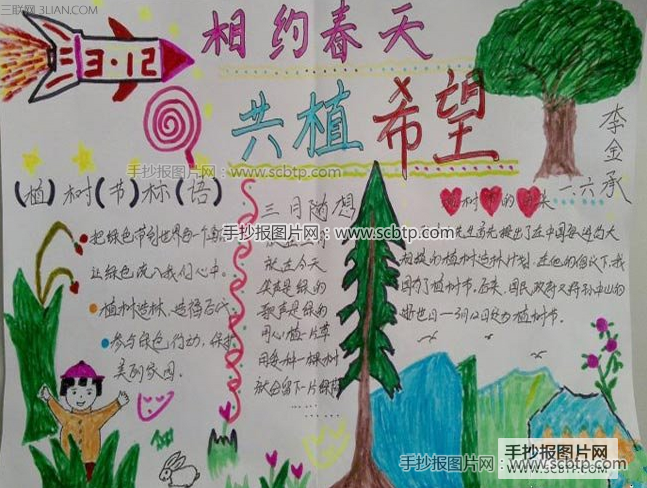 三联网 3LIAN.COM
3·12
相约春天
共植希望
李金承
一.六
手抄报图片网：www.scbtp.com
(植)树(节)标(语)
把绿色带到世界每一个
让绿色流入我们心中。
植树造林,造福后代
参与绿色行动,保护
美丽家园。
三月随想
手抄报图片网：www.scbtp.com
就在今天
笑声是绿的
歌声是绿的
用心植一片草
因多种一棵树
就会留下一片绿荫
……
树节的
手抄报图片网：www.scbtp.com
先生首先提出了在中国每边的大
规模的植树造林计划,在他的倡议下,我
国有了植树节。后来,国民政府又将孙中山的
逝世日—3月12日定为植树节。
手抄报图片网：www.scbtp.com
手抄报图片网
www.scbtp.com